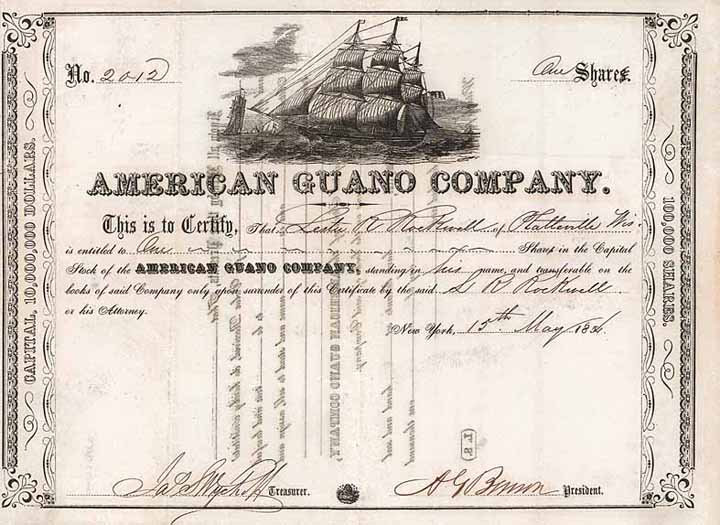 No. 2012
One Shares.
AMERICAN GUANO COMPANY.
This is to Certify, That Lester R Rockwell of Platteville Wis
is entitled to One Share in the Capital
Stock of the AMERICAN GUANO COMPANY, standing in his name, and transferable on the
books of said Company only upon surrender of this Certificate by the said L R Rockwell
or his Attorney.
New York, 15th May 185
Treasurer.
A G Benson President.
CAPITAL, 10,000,000 DOLLARS.
100,000 SHARES.